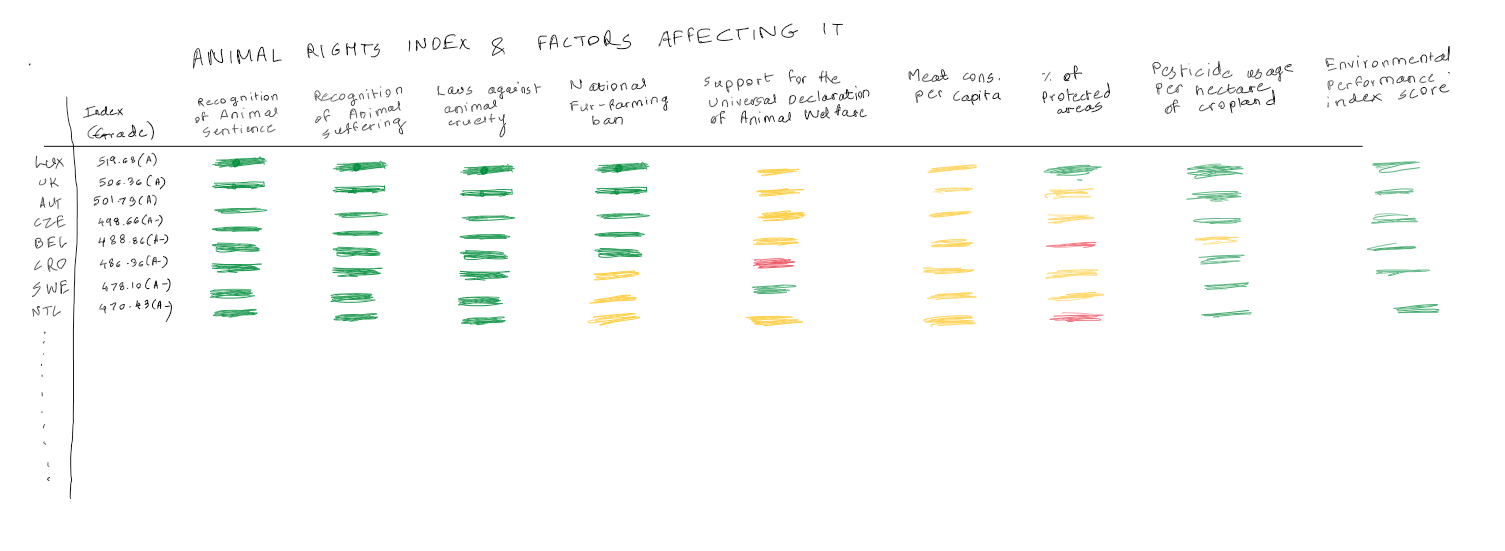 ANIMAL RIGHTS INDEX & FACTORS AFFECTING IT
Index
(Grade)
Recognition
of Animal
Sentience
Recognition
of Animal
suffering
Laws against
animal
cruelty
National
Fur-farming
ban
Support for the
Universal Declaration
of Animal Welfare
Meat cons.
per capita
% of
Protected
areas
Pesticide usage
Per hectare
of cropland
Environmental
Performance
index score
Lux 519.68(A)
UK 506.36(A)
AUT 501.73(A)
CZE 498.66(A-)
BEL 488.86(A-)
CRO 486.96(A-)
SWE 478.10(A-)
NTL 470.43(A-)